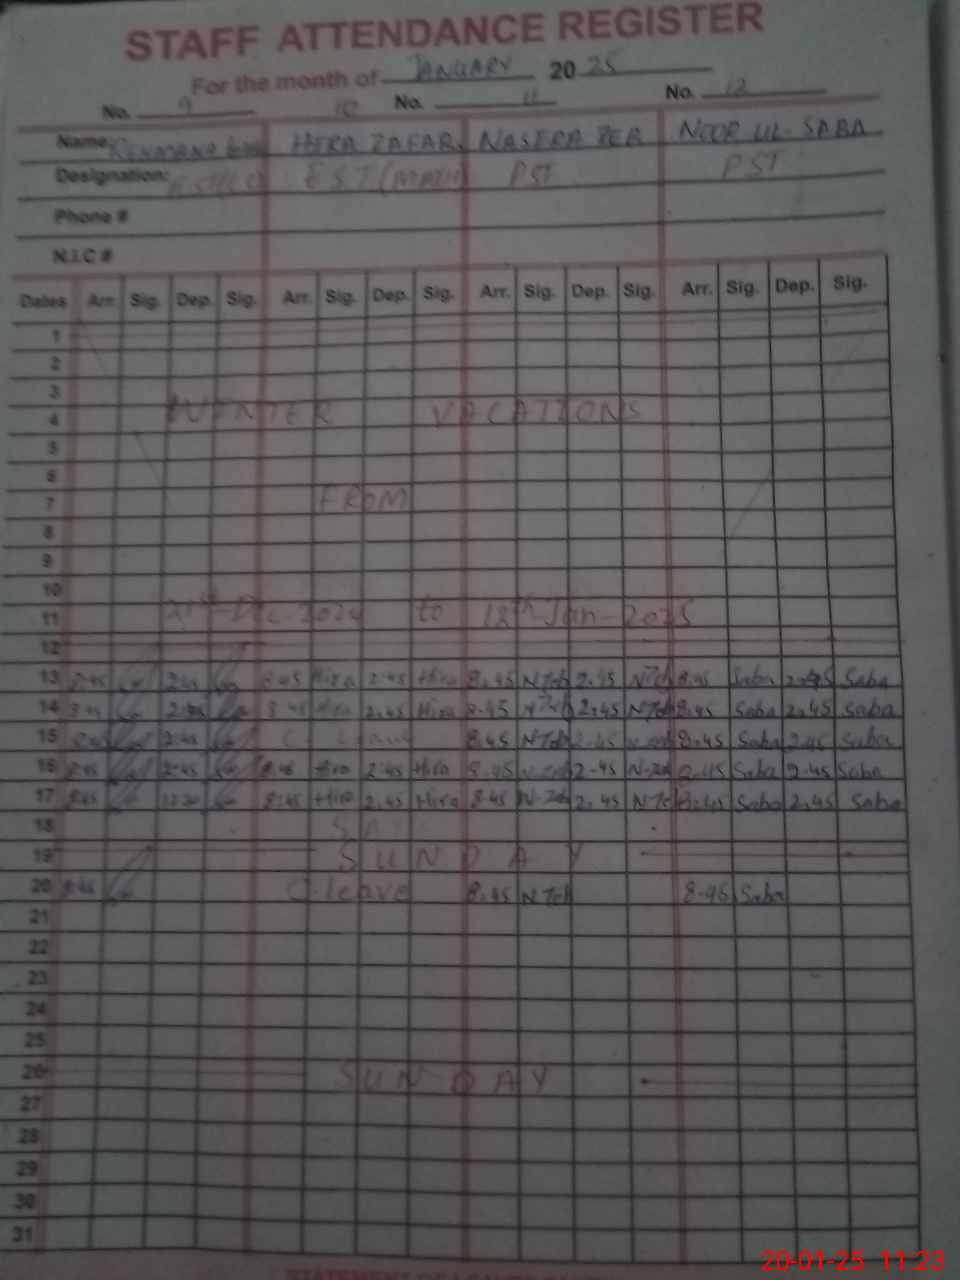 STAFF ATTENDANCE REGISTER
For the month of JANUARY 2025
No. 9 10 No. 11 No. 12
Name: HIRA ZAFAR NASEERA NOOR-UL-SABA
Designation: EST (MATH) PST PST
Phone #
N.I.C #
Dates Arr. Sig. Dep. Sig. Arr. Sig. Dep. Sig. Arr. Sig. Dep. Sig. Arr. Sig. Dep. Sig.
1
2
3
4 WINTER VACATIONS
5
6
7 FROM
8
9
10
11 21st-Dec-2024 to 12th Jan-2025
12
13 8:45 2:45 8:45 Hira 2:45 Hira 8.45 NTch 2.45 NTch 8.45 Saba 2.45 Saba
14 8:45 2:45 8:45 Hira 2.45 Hira 8.45 NTch 2.45 NTch 8.45 Saba 2.45 Saba
15 8:45 2:45 C. Leave 8.45 NTch 2.45 8.45 Saba 2.45 Saba
16 8:45 2:45 8:45 Hira 2:45 Hira 8.45 2.45 8.45 Saba 2.45 Saba
17 8:45 12:30 8:45 Hira 2.45 Hira 8.45 2.45 NTch 8.45 Saba 2.45 Saba
18
19 SUNDAY
20 8:45 C. leave 8.45 NTch 8.45 Saba
21
22
23
24
25
26 SUNDAY
27
28
29
30
31
20-01-25 11:23